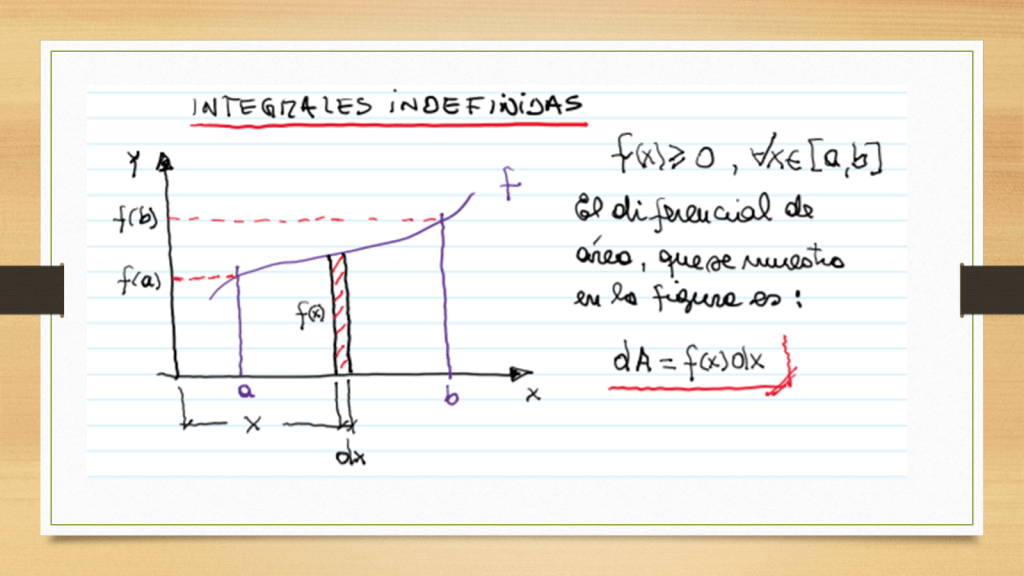 INTEGRALES INDEFINIDAS
f(x) ≥ 0 , ∀x ∈ [a,b]
Y
f
f(b)
El diferencial de
área, que se muestra
f(a)
en la figura es:
f(x)
dA = f(x)dx
a
b
x
X
dx